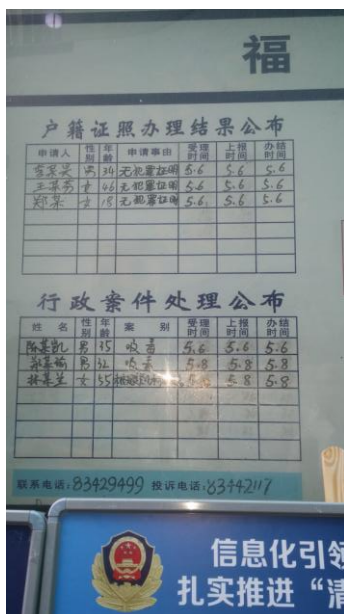 福
户籍证照办理结果公布
申请人 性别 年龄 申请事由 受理时间 上报时间 办结时间
李某英 男 34 无犯罪证明 5.6 5.6 5.6
王某芳 女 46 无犯罪证明 5.6 5.6 5.6
郑某 女 18 无犯罪证明 5.6 5.6 5.6
行政案件处理公布
姓名 性别 年龄 案别 受理时间 上报时间 办结时间
陈某凯 男 35 吸毒 5.6 5.6 5.6
某 男 32 吸毒 5.8 5.8 5.8
林某兰 女 55 5.8 5.8
联系电话:83429499 投诉电话:83442117
信息化引领
扎实推进“清